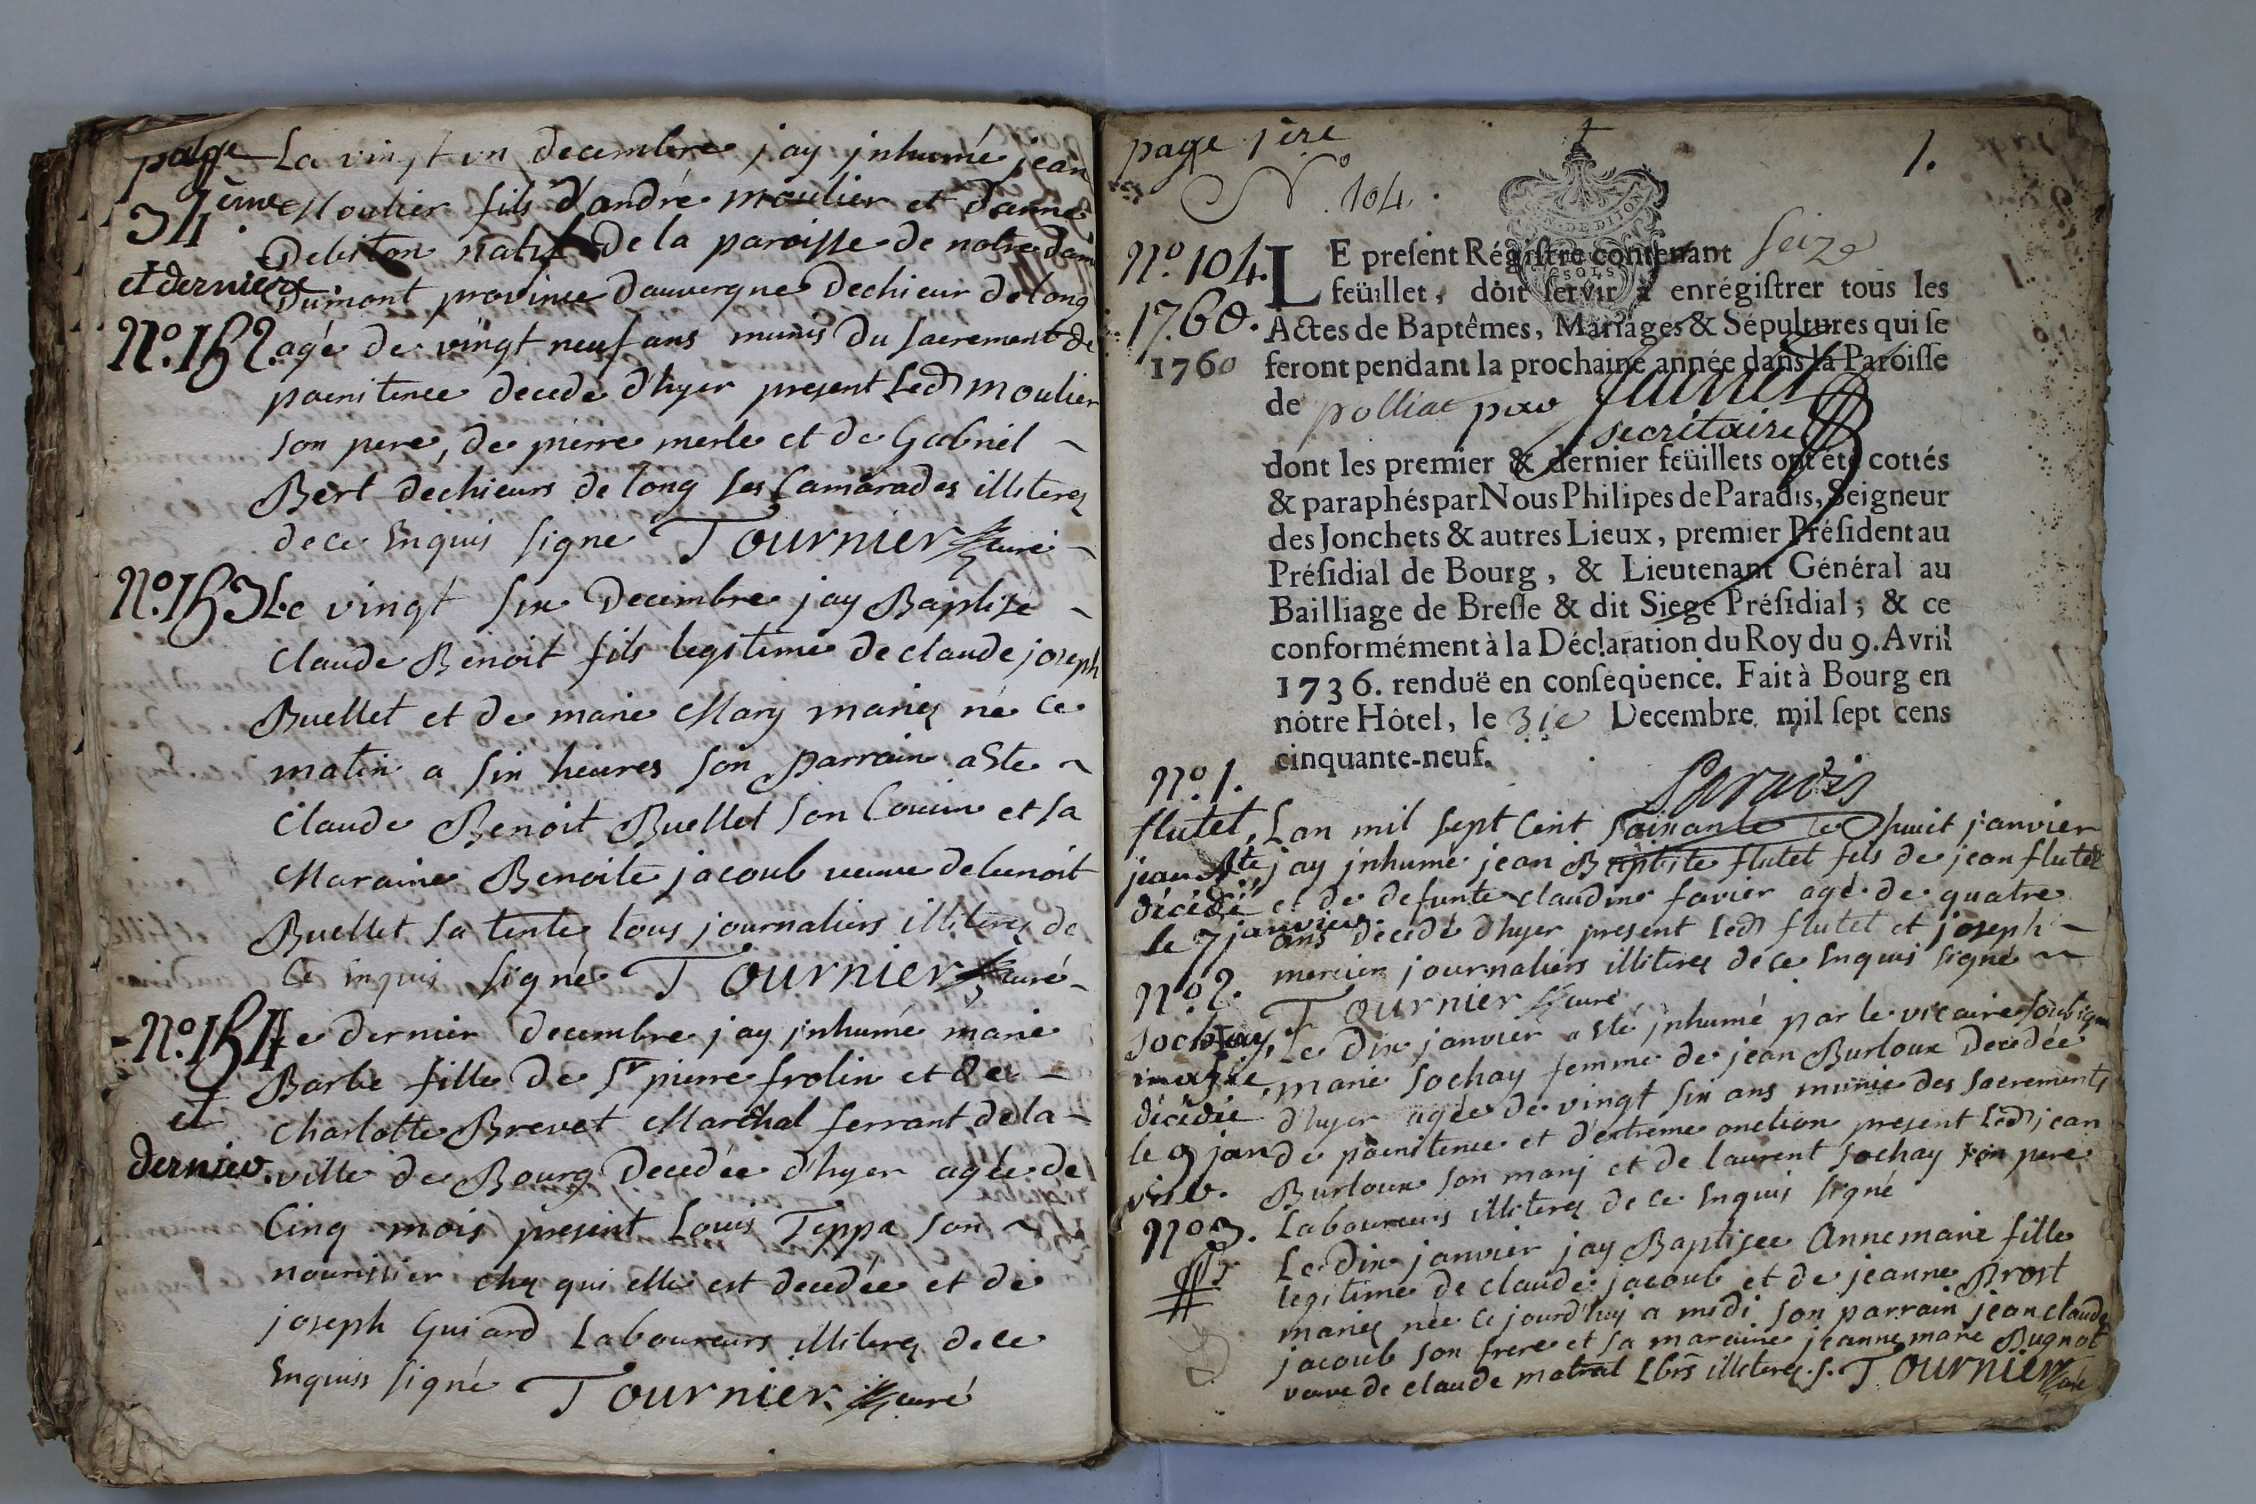 page
34ème
et dernière
La vingt un decembre j'ay jnhumé jean
Moulier fils d'andré moulier et d'anne
Debiton natif de la paroisse de notre dame
Dumont province Dauvergne dechieur delong
No. 152. agé de vingt neuf ans munis du sacrement de
poenitence decedé d'hyer present led moulier
son pere, de pierre merle et de Gabriel ~
Bert dechieurs de long ses Camarades illiterez
dece Enquis signé Tournier curé ~
No. 153 Le vingt six Decembre j'ay Baptisé ~
Claude Benoit fils legitime de claude joseph
Buellet et de marie Mary mariez né ce
matin a six heures son parrain a Ete ~
Claude Benoit Buellet son Cousin et sa
Maraine Benoite jacoub veuve de benoit
Buellet sa tente tous journaliers illiterez de
Ce Enquis signé Tournier curé ~
No. 154 Le dernier decembre j'ay jnhumé marie
et
dernier.
Barbe fille de Sr pierre frolin et de ~
Charlotte Brevet Marchal ferrant de la ~
ville de Bourg Decedée d'hyer agée de
Cinq mois present Louis Teppe son ~
nourissier chez qui elle est decedée et de
joseph Guiard Laboureurs illiterez de ce
Enquis signé Tournier curé
page 1ère
1.
No 104.
No. 104.
1760.
1760
LE present Régistre contenant seize
feüillet, doit servir à enrégistrer tous les
Actes de Baptêmes, Mariages & Sépultures qui se
feront pendant la prochaine année dans la Paroisse
de polliat par
secrétaire
dont les premier & dernier feüillets ont été cottés
& paraphés par Nous Philipes de Paradis, Seigneur
des Jonchets & autres Lieux, premier Président au
Présidial de Bourg, & Lieutenant Général au
Bailliage de Bresse & dit Siege Présidial; & ce
conformément à la Déclaration du Roy du 9. Avril
1736. renduë en conséquence. Fait à Bourg en
nôtre Hôtel, le 31e Decembre mil sept cens
cinquante-neuf.
Paradis
No. 1.
flutet,
jean Bte
décédé
le 7 janvier.
Lan mil sept Cent soixante le huit janvier
j'ay jnhumé jean Baptiste flutet fils de jean flutet
et de defunte claudine favier agé de quatre
ans decedé d'hyer present led flutet et joseph ~
mercier journaliers illiterez de ce Enquis signé ~
Tournier curé
No. 2.
sochay,
marie,
décédée
le 9 jan
vier.
Le Dix janvier a Eté jnhumé par le vicaire soubsigné
marie sochay femme de jean Burloux Decedée
d'hyer agée de vingt six ans munie des sacrements
de poenitence et d'extreme onction present led jean
Burloux son mary et de laurent sochay son pere
Laboureurs illiterez de ce Enquis signé
No 3.
Le Dix janvier j'ay Baptisée Anne marie fille
legitime de claude jacoub et de jeanne Brost
mariez née ce jourd'huy a midi son parrain jean claude
jacoub son frere et sa maraine jeanne marie Bugnot
veuve de claude matrat Lbrs illiterez. s. Tournier curé